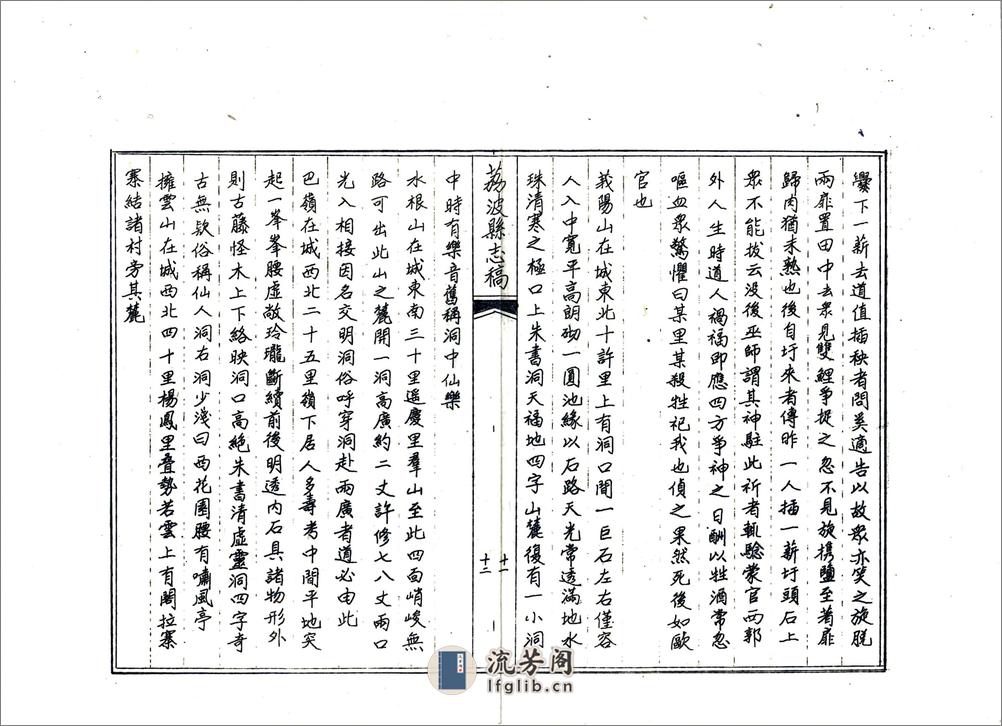 爨下一薪去道值插秧者問奚適告以故衆亦笑之旋脫
兩扉置田中去衆見雙鯉爭捉之忽不見旋携鹽至著扉
歸肉猶未熟也後自圩來者傳昨一人插一薪圩頭石上
衆不能拔云没後巫師謂其神駐此祈者輒驗蒙官西郭
外人生時道人禍福即應四方爭神之日酬以牲酒常忽
嘔血衆驚懼曰某里某殺牲祀我也偵之果然死後如歐
官也
莪陽山在城東北十許里上有洞口間一巨石左右僅容
人入中寬平高朗砌一圓池緣以石路天光常透滿地水
珠清寒之極口上朱書洞天福地四字山麓復有一小洞
荔波縣志稿
十一
十二
中時有樂音舊稱洞中仙樂
水根山在城東南三十里遥慶里羣山至此四面峭峻無
路可出此山之麓開一洞高廣約二丈許修七八丈兩口
光入相接因名交明洞俗呼穿洞赴兩廣者道必由此
巴嶺在城西北二十五里嶺下居人多壽考中間平地突
起一峯峯腰虚敞玲瓏斷續前後明透内石具諸物形外
則古藤怪木上下絡映洞口高絶朱書清虚靈洞四字奇
古無欵俗稱仙人洞右洞少淺曰西花園腰有嘯風亭
擁雲山在城西北四十里楊鳳里疊勢若雲上有闍拉寨
寨結諸村旁其麓
流芳阁
lfglib.cn